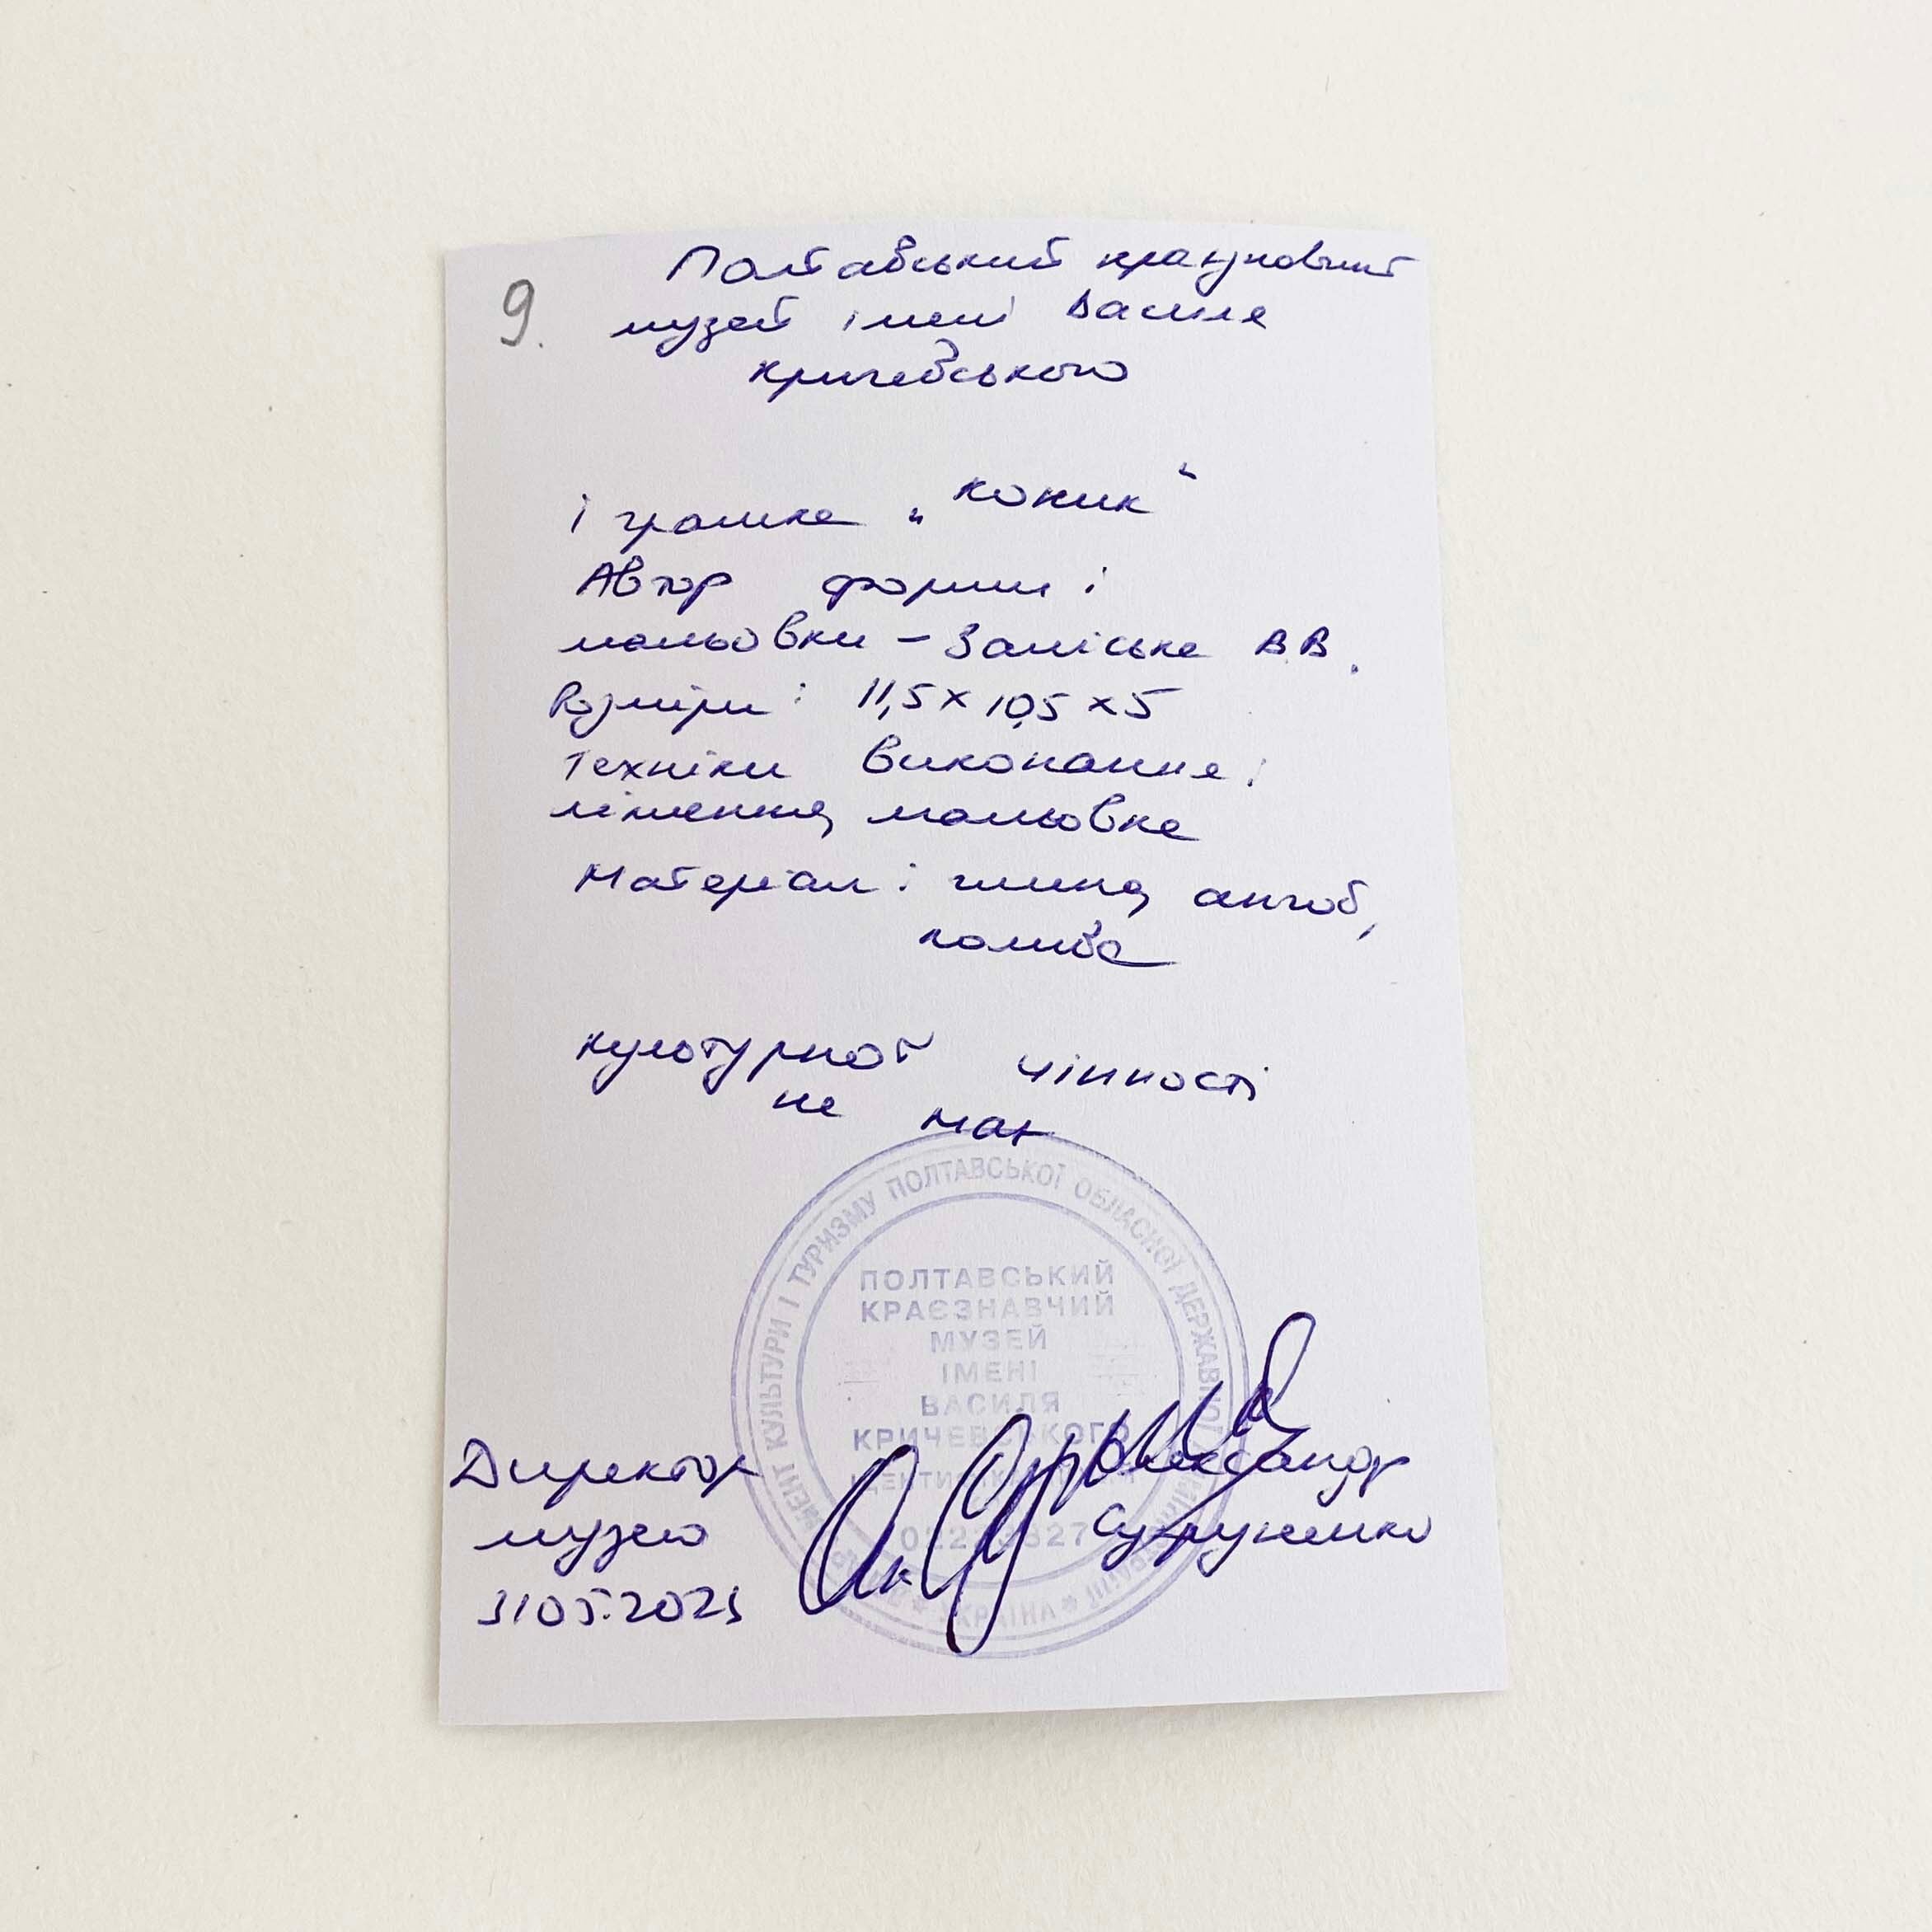 9.
Полтавський краєзнавчий
музей імені Василя
Кричевського
Іграшка „коник“
Автор форми і
мальовки – Заліська В.В.
Розміри: 11,5 х 10,5 х 5
Техніки виконання:
ліплення, мальовка
Матеріал: глина, ангоб,
полива
Культурної цінності
не має
КУЛЬТУРИ І ТУРИЗМУ ПОЛТАВСЬКОЇ ОБЛАСНОЇ ДЕРЖАВНОЇ
ПОЛТАВСЬКИЙ
КРАЄЗНАВЧИЙ
МУЗЕЙ
ІМЕНІ
ВАСИЛЯ
КРИЧЕВСЬКОГО
УКРАЇНА
Директор
музею
Олександр
Супруненко
31.05.2023